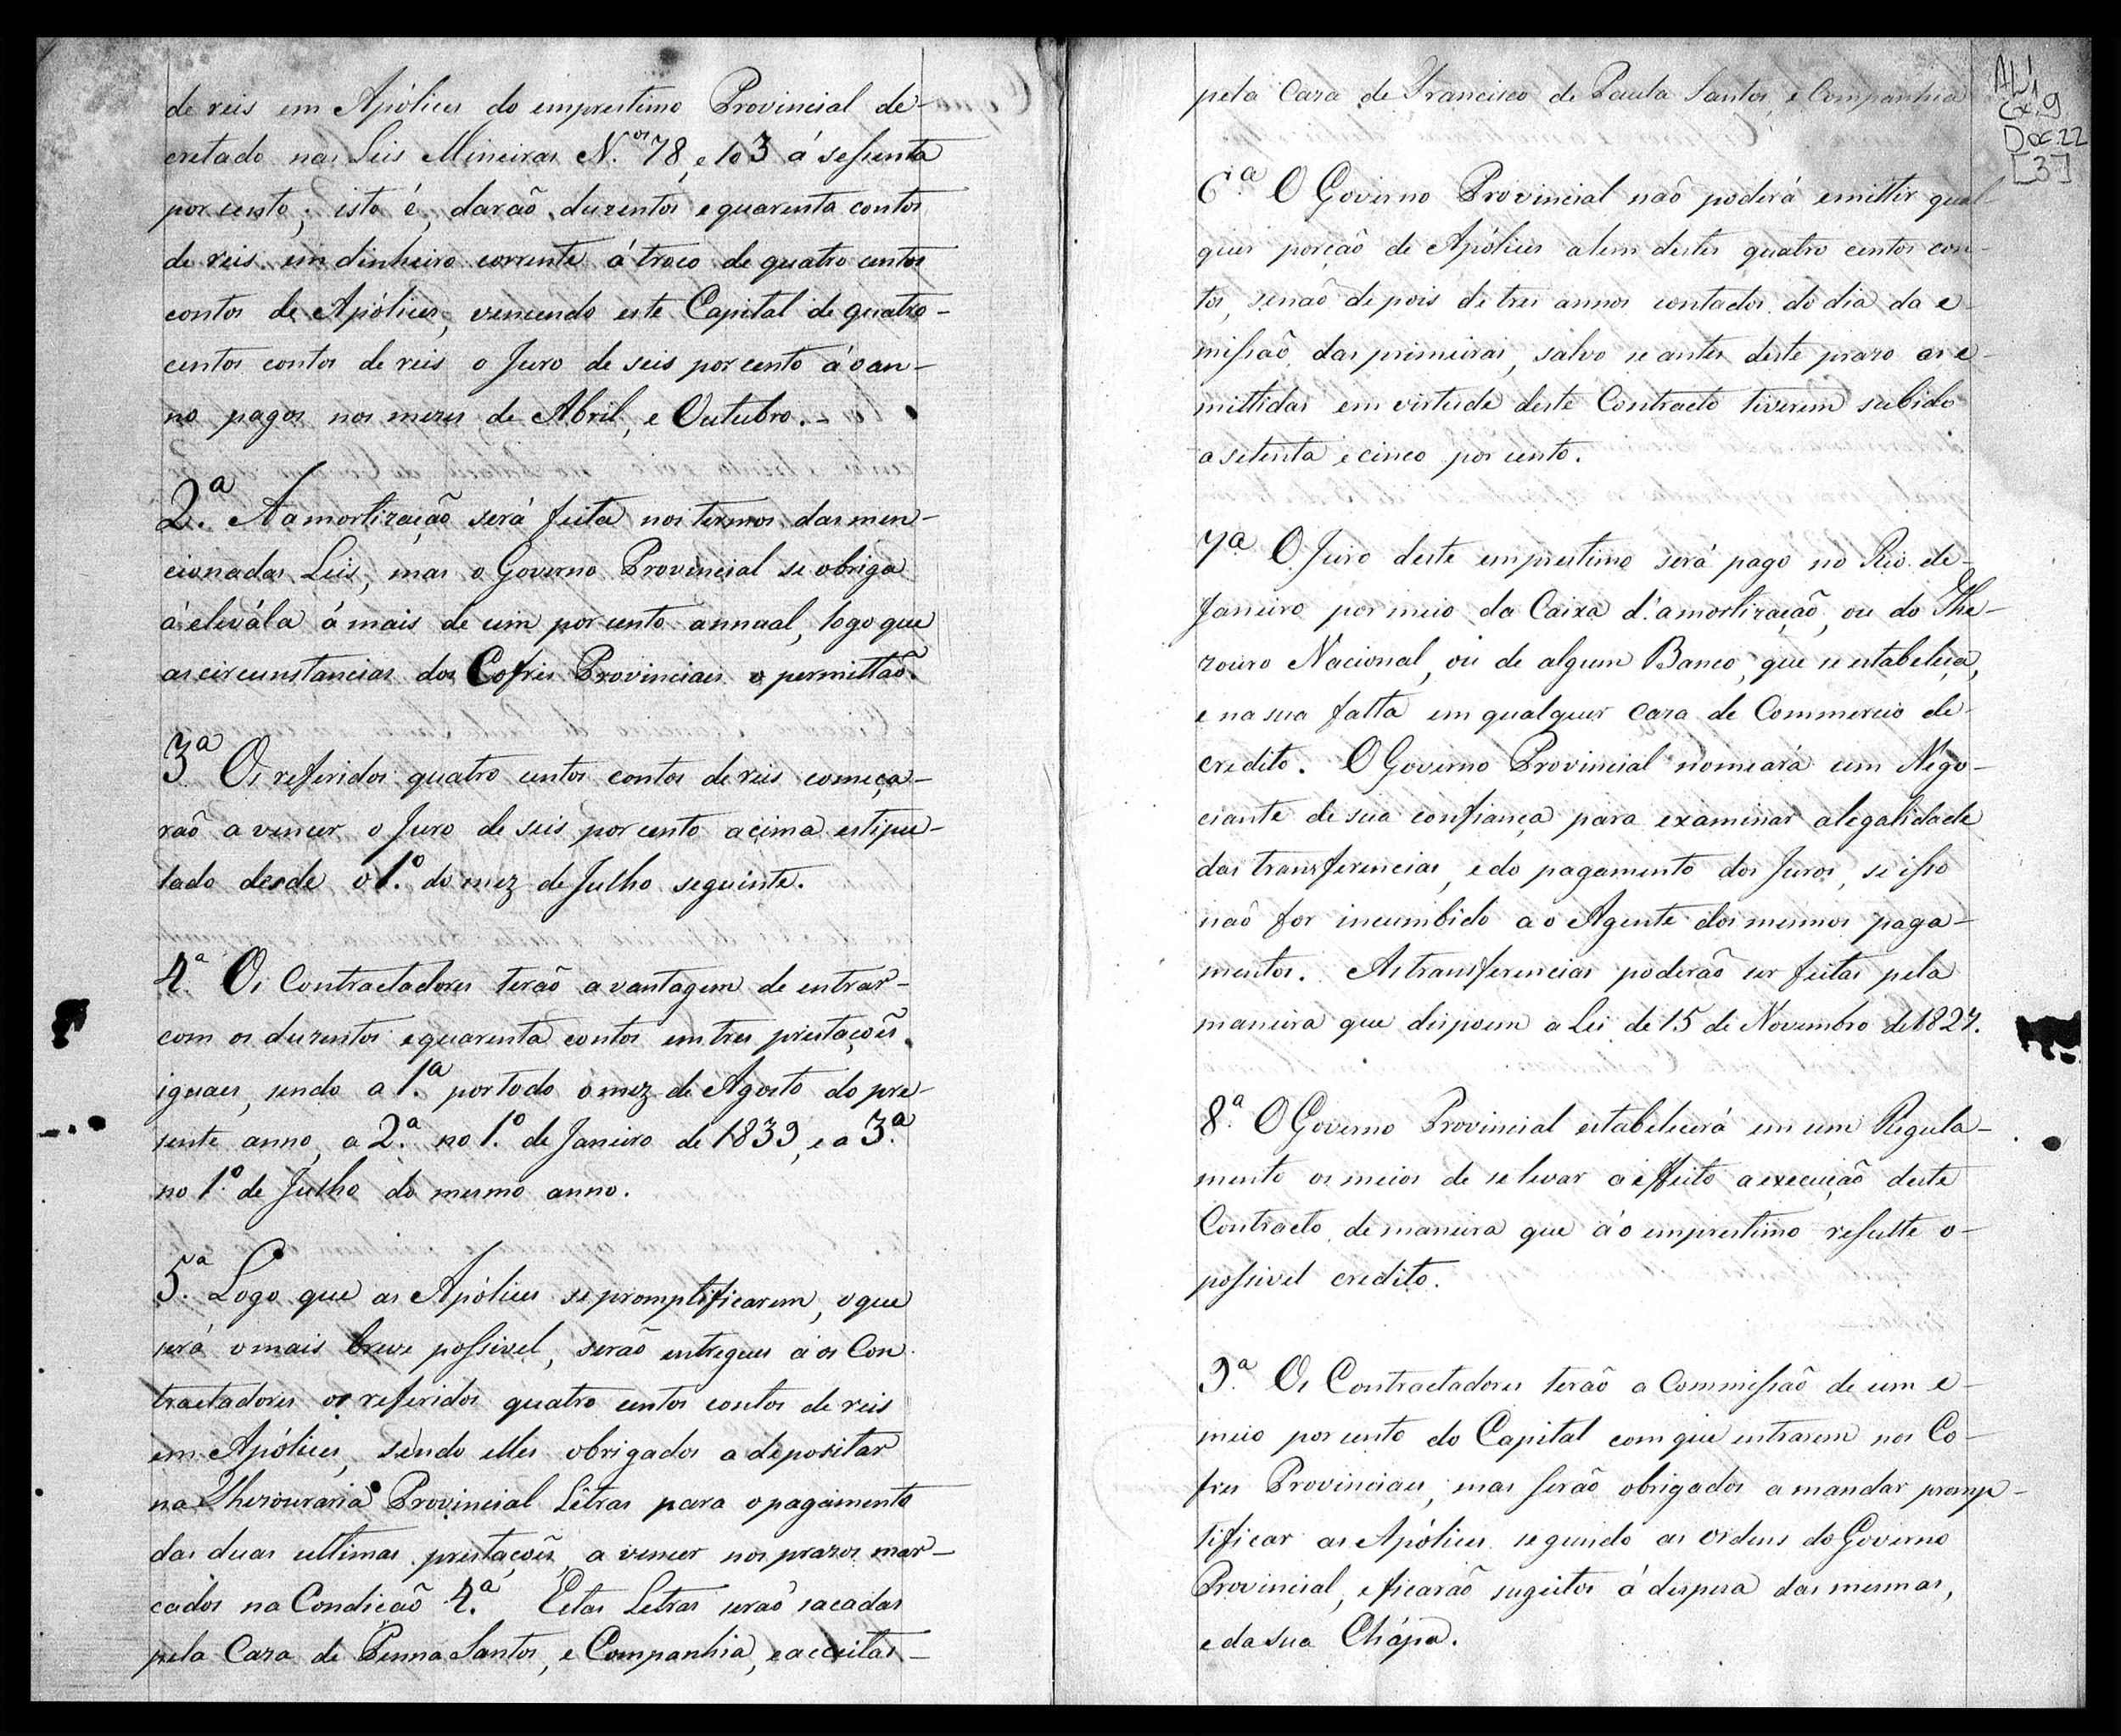 de reis em Apólices do emprestimo Provincial de-
cretado nas Leis Mineiras N.os 78, e 103 á sessenta
por cento; isto é, darão duzentos e quarenta contos
de reis em dinheiro corrente á troco de quatro centos
contos de Apólices, vencendo este Capital de quatro-
centos contos de reis o Juro de seis por cento á o an-
no pagos nos mezes de Abril, e Outubro.-
2.a A amortização será feita nos termos das men-
cionadas Leis; mas o Governo Provincial se obriga
á elevála á mais de um por cento annual, logo que
as circunstancias dos Cofres Provinciaes o permittão.
3.a Os referidos quatro centos contos de reis começa-
raõ a vencer o Juro de seis por cento acima estipu-
lado desde o 1.o do mez de Julho seguinte.
4.a Os Contractadores terão a vantagem de entrar-
com os duzentos e quarenta contos em tres prestaçoẽs
iguaes, sendo a 1.a por todo o mez de Agosto do pre-
sente anno, a 2.a no 1.o de Janeiro de 1839, e a 3.a
no 1.o de Julho do mesmo anno.
5.a Logo que as Apólices se promptificarem, o que
será o mais breve possivel, serão entregues á os Con-
tractadores os referidos quatro centos contos de reis
em Apólices, sendo elles obrigados a depositar
na Thezouraria Provincial Lêtras para o pagamento
das duas ultimas prestaçoẽs, a vencer nos prazos mar-
cados na Condicaõ 4.a Estas Letras seraõ sacadas
pela Caza de Penna Santos, e Companhia, e acceitas-
pela Caza de Francisco de Paula Santos, e Companhia
AL1
Cx.9
Doc.22
[3]
6.a O Governo Provincial naõ poderá emittir qual-
quer porçaõ de Apólices alem destes quatro centos con-
tos, senaõ depois de tres annos contados do dia da e-
missaõ das primeiras, salvo se antes deste prazo as e-
mittidas em virtude deste Contracto tiverem subido
a setenta e cinco por cento.
7.a O Juro deste emprestimo será pago no Rio de-
Janeiro por meio da Caixa d'amortizaçaõ, ou do The-
zouro Nacional, ou de algum Banco, que se estabeleça,
e na sua falta em qualquer caza de Commercio de-
credito. O Governo Provincial nomeará um Nego-
ciante de sua confiança para examinar a legalidade
das transferencias, e do pagamento dos Juros, se isso
naõ for incumbido a o Agente dos mesmos paga-
mentos. As transferencias poderaõ ser feitas pela
maneira que dispoem a Lei de 15 de Novembro de 1827.
8.a O Governo Provincial estabelecerá em um Regula-
mento os meios de se levar a effeito a execuçaõ deste
Contracto, de maneira que á o emprestimo resulte o-
possivel credito.
9.a Os Contractadores teraõ a Commissaõ de um e-
meio por cento do Capital com que entrarem nos Co-
fres Provinciaes; mas seraõ obrigados a mandar promp-
tificar as Apólices segundo as ordens do Governo
Provincial, e ficaraõ sugeitos á despesa das mesmas,
e da sua Chápa.